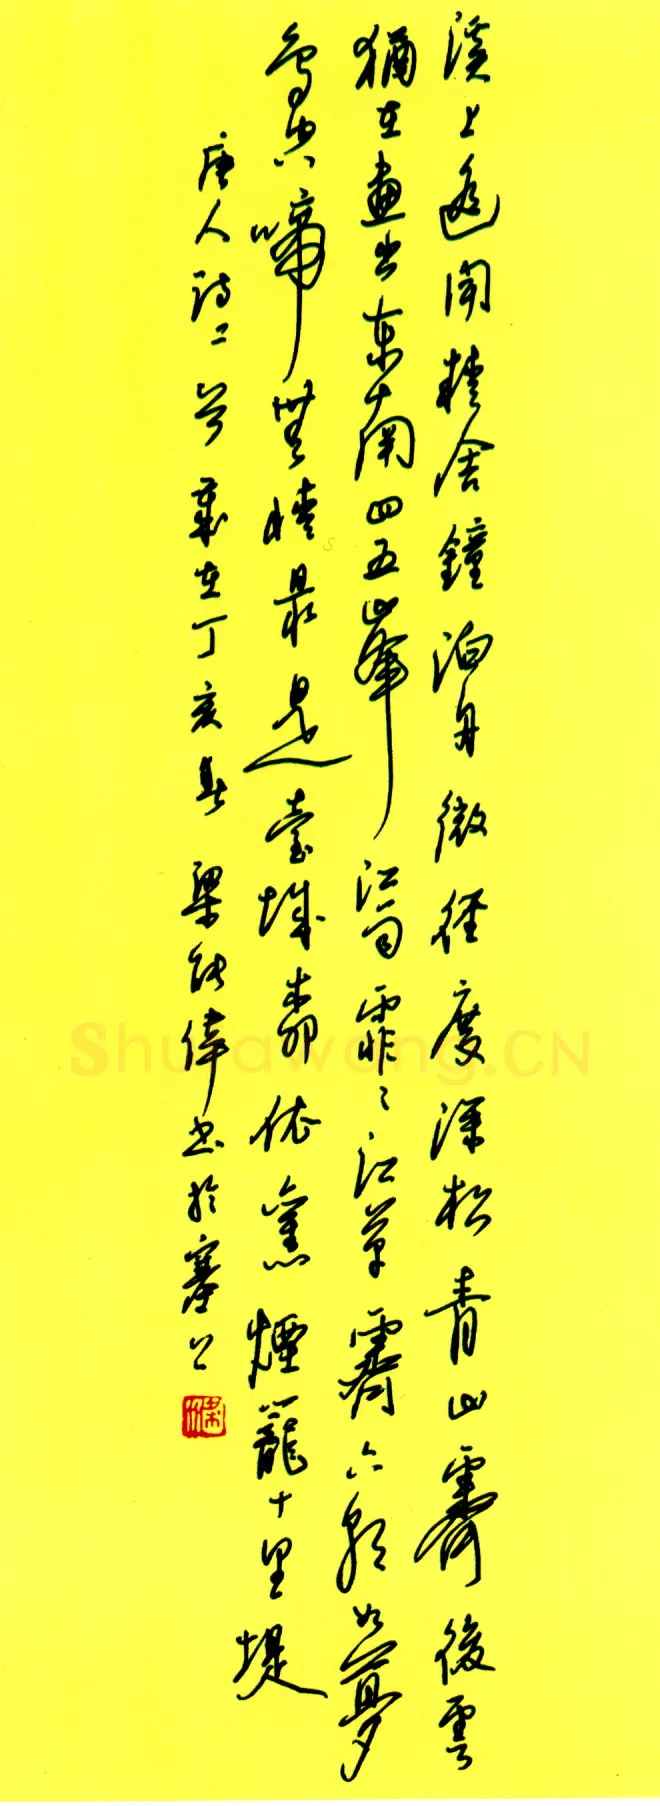 溪上遙聞精舍鐘泊舟微徑度深松青山霽後雲
猶在畫出東南四五峯江雨霏々江草霽六朝如夢
鳥空啼無情最是臺城柳依舊煙籠十里堤
唐人詩二首歲在丁亥春梁能偉書於塞上
Shufawang.CN